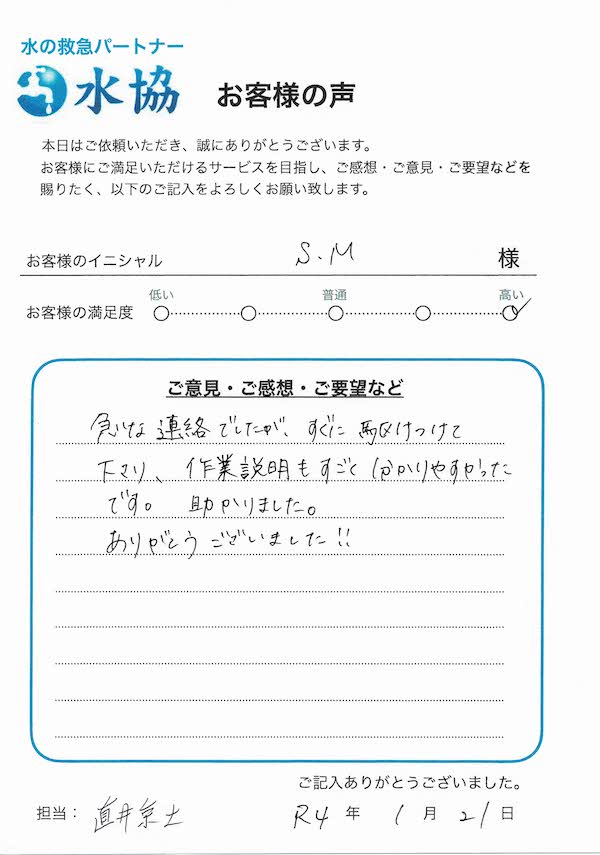 水の救急パートナー
水協 お客様の声
本日はご依頼いただき、誠にありがとうございます。
お客様にご満足いただけるサービスを目指し、ご感想・ご意見・ご要望などを
賜りたく、以下のご記入をよろしくお願い致します。
お客様のイニシャル S.M 様
低い 普通 高い
お客様の満足度
ご意見・ご感想・ご要望など
急な連絡でしたが、すぐに駆けつけて
下さり、作業説明もすごく分かりやすかった
です。 助かりました。
ありがとうございました!!
ご記入ありがとうございました。
担当: 直井 R4 年 1 月 21 日